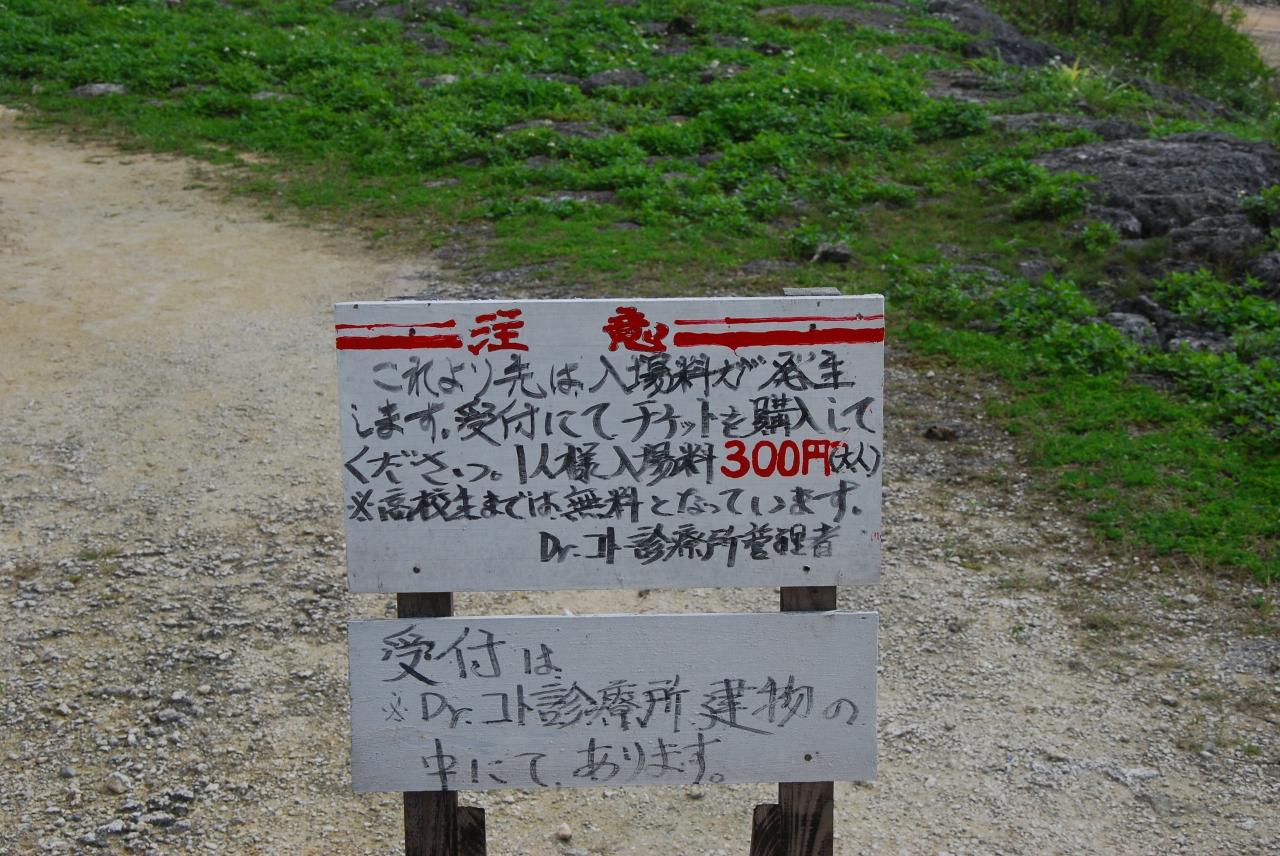 注意
これより先は、入場料が発生
します。受付にてチケットを購入して
ください。1人様入場料300円(大人)
※高校生までは、無料となっています。
Dr.コトー診療所管理者
受付は、
※Dr.コトー診療所建物の
中にて、あります。